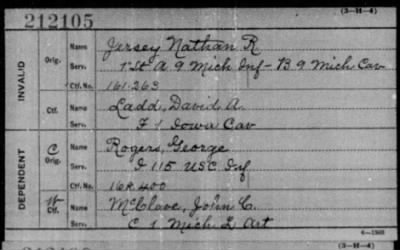 212105
(3-H-4)
INVALID
Orig. Name Jersey Nathan R
Serv. 1st A 9 Mich Inf - B 9 Mich Cav
Ctf. No. 161.263
Ctf. Name Ladd, David A.
Serv. F 1 Iowa Cav
DEPENDENT
C Orig. Name Rogers, George
Serv. I 115 USC Inf
Ctf. No. 168.400
W Ctf. Name McClave, John C.
Serv. C 1 Mich L Art
(3-H-4)